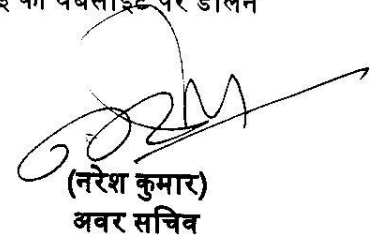 की वेबसाईट पर डालने
(नरेश कुमार)
अवर सचिव